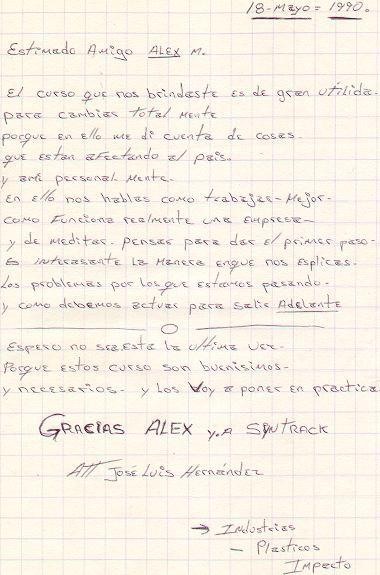 18-Mayo=1990.
Estimado Amigo ALEX M.
El curso que nos brindaste es de gran utilida-
para cambiar total mente
porque en ello me di cuenta de cosas.
que estan afectando al pais.
y ami personal mente.
En ello nos hablas como trabajar-Mejor-
como Funciona realmente una Empresa-
y de meditar. pensar para dar el primer paso-
Es interasante la Manera enque nos Esplicas.
Los problemas por los que estamos pasando-
y como debemos actuar para salir Adelante
Espero no sea esta la ultima vez-
Porque estos curso son buenisimos-
y necesarios- y los Voy a poner en practica
GRACIAS ALEX y.A SYNTRACK
Att José Luis Hernández
→ Industrias
- Plasticos
Impacto